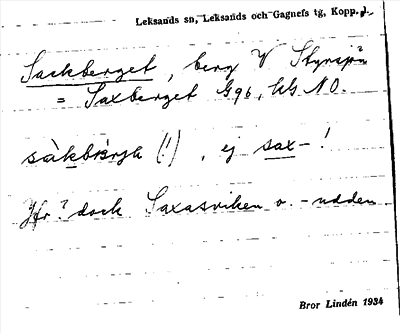 Leksands sn, Leksands och Gagnefs tg, Kopp. l.
Sackberget, berg V Styrsjön
= Saxberget G96, bG NO.
(!), ej sax- !
Jfr? dock Saxasviken o. -udden
Bror Lindén 1934